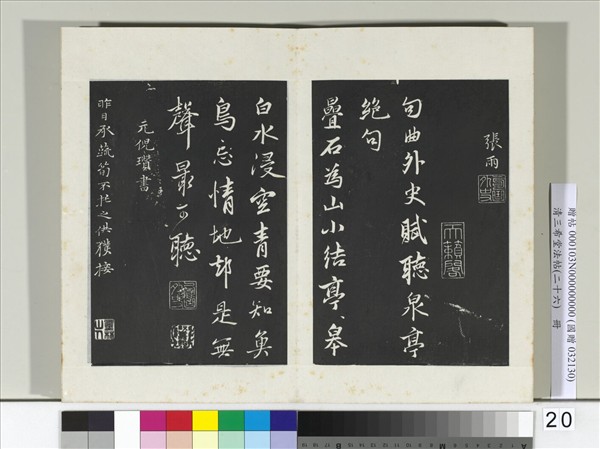 張雨
句曲外史賦聽泉亭
絕句
疊石為山小結亭皋
白水浸空青要知魚
鳥忘情地却是無
聲最可聽
元倪瓚書
昨日承蔬筍不托之供獲接
贈帖 000103N000000000 (國贈 032130)
清三希堂法帖(二十六) 冊
20